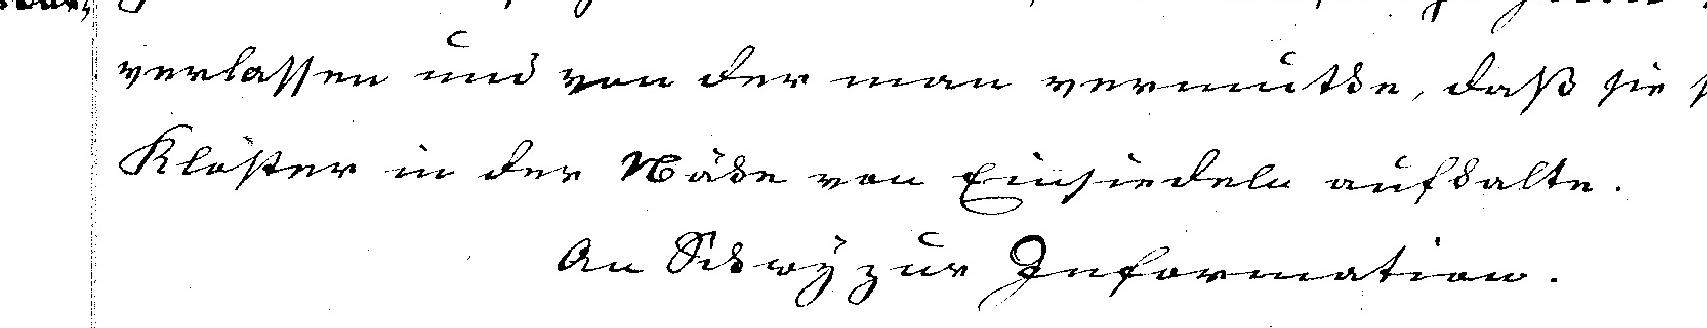 verlassen und von der man vermuthe, daß sie
Klöster in der Nähe von Einsiedeln aufhalte.
An Schwÿz zur Information.